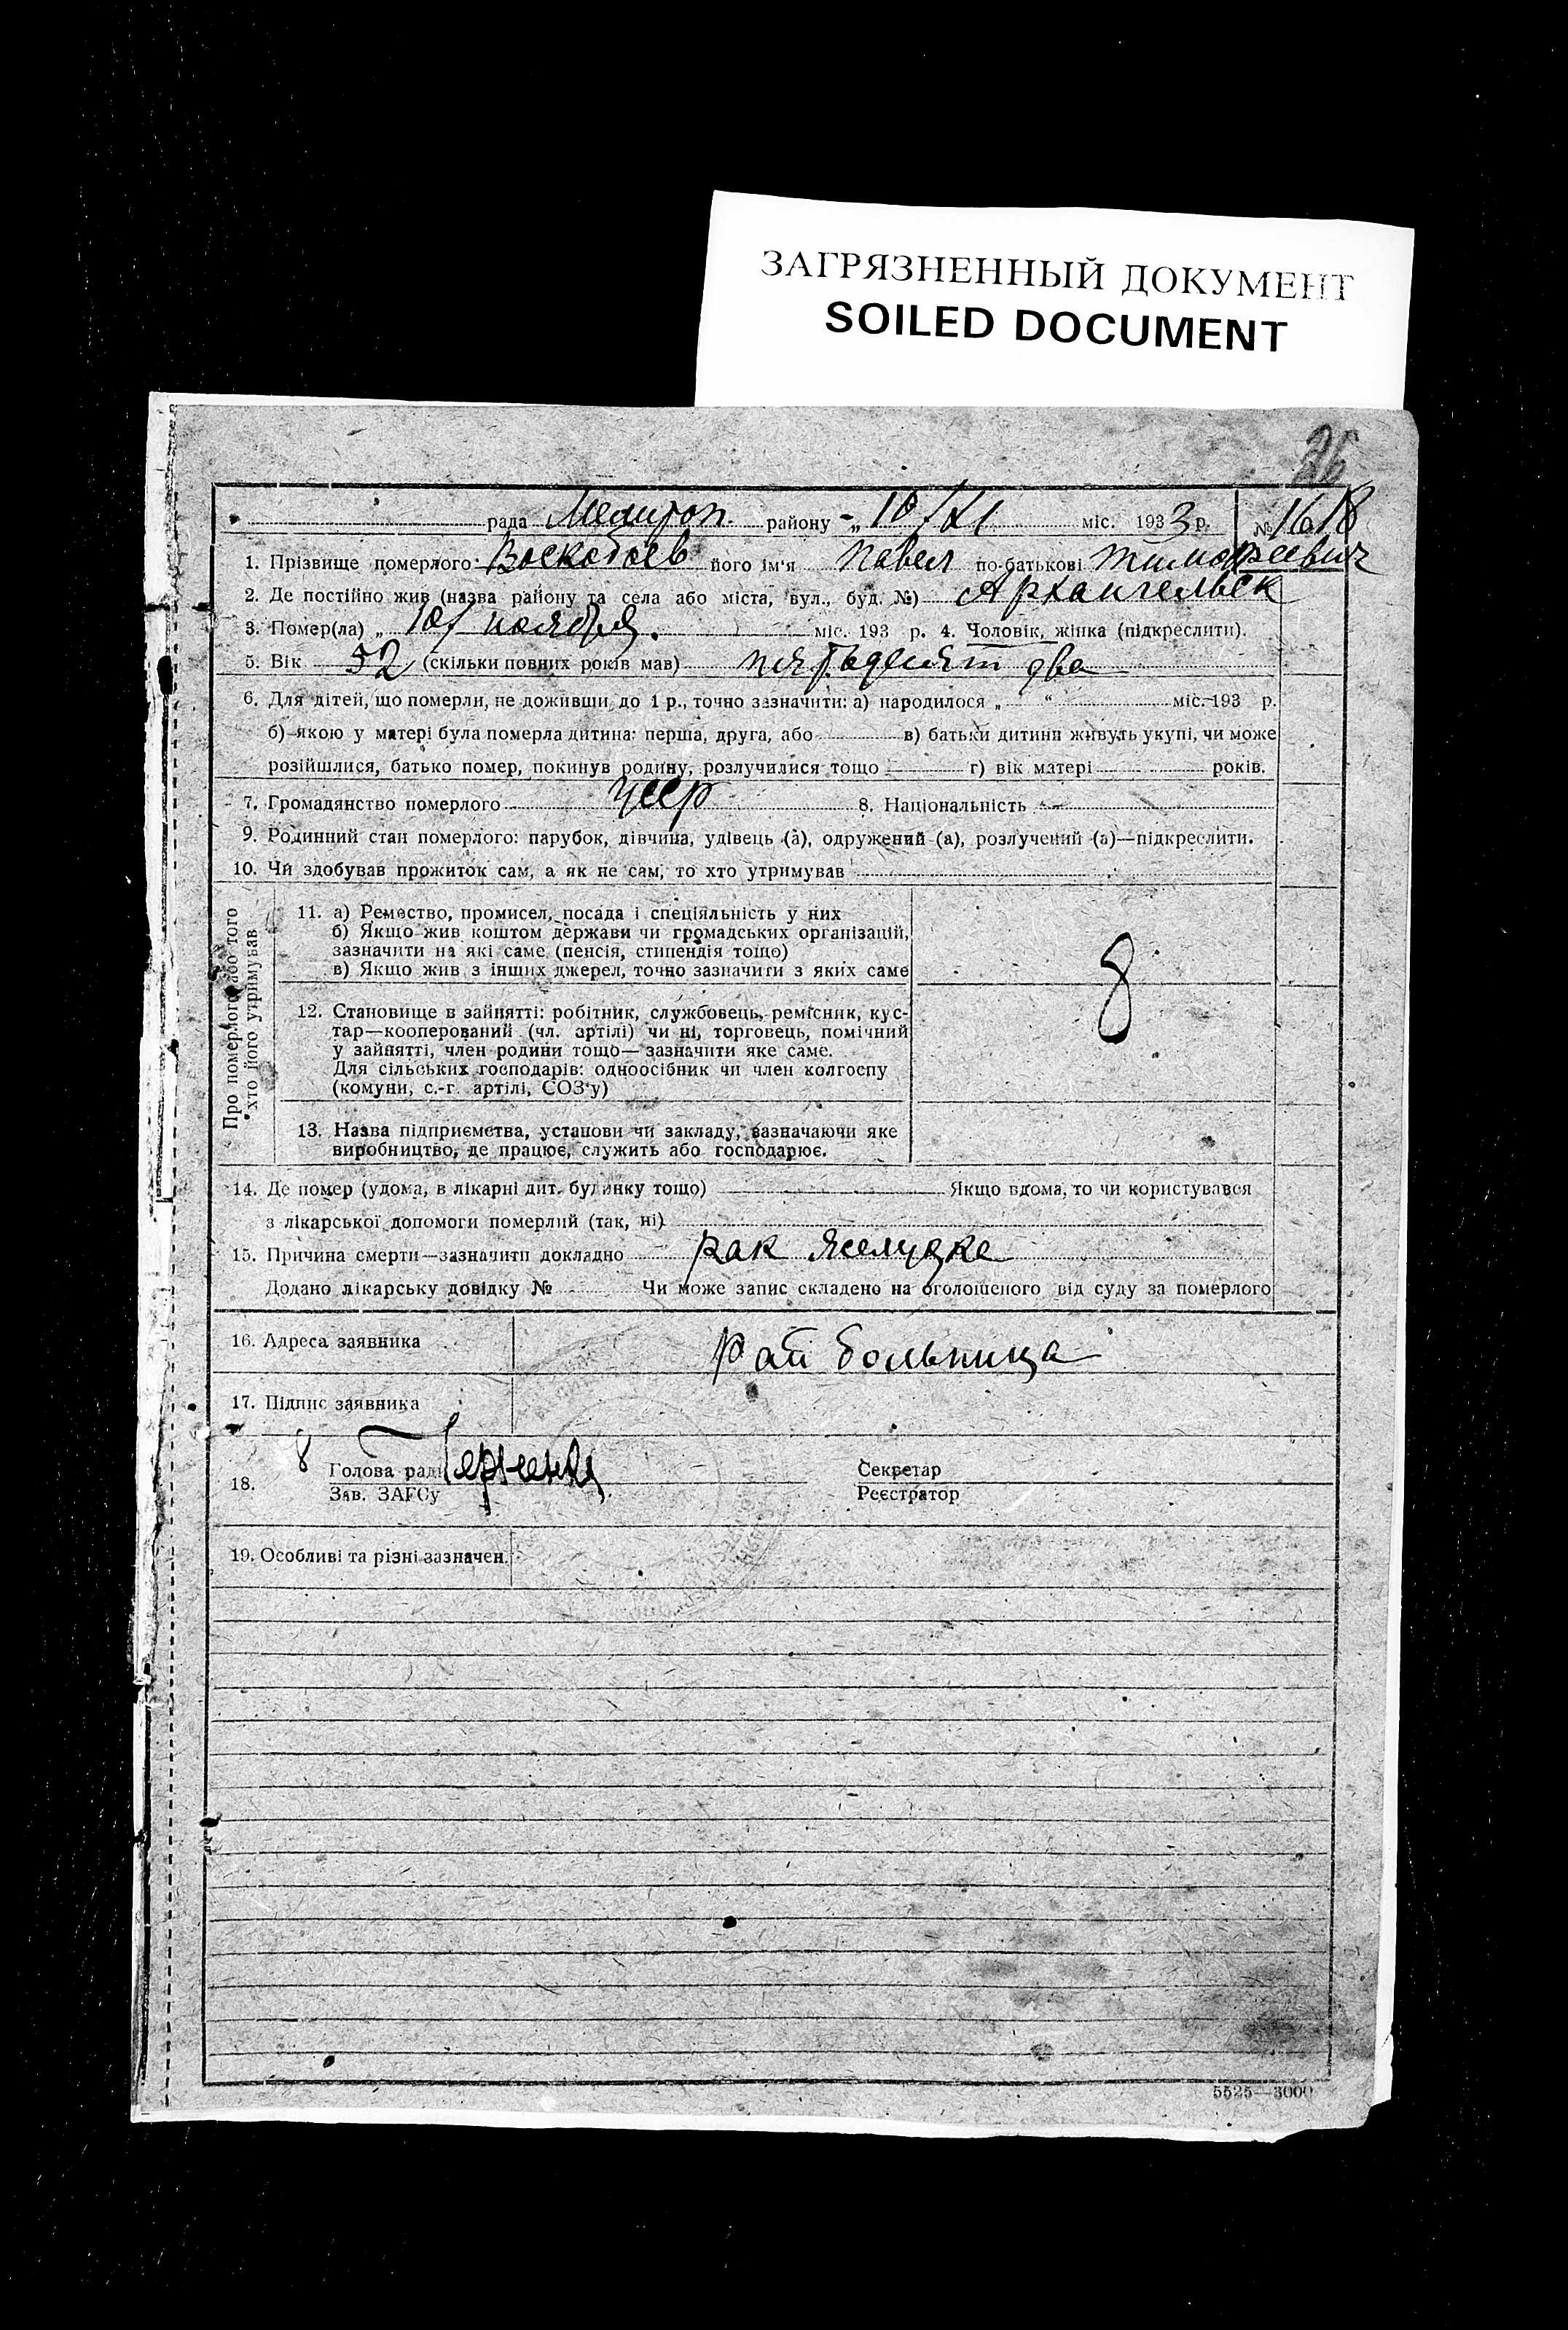 ЗАГРЯЗНЕННЫЙ ДОКУМЕНТ
SOILED DOCUMENT
26
рада Мелитоп. району „10/XI міс. 1933 р. № 1618
1. Прізвище померлого Воскобоев його ім'я Павел по-батькові Тимофеевич
2. Де постійно жив (назва району та села або міста, вул., буд. №) Архангельск
3. Помер(ла) „10/ ноября. міс. 193 р. 4. Чоловік, жінка (підкреслити).
5. Вік 52 (скільки повних років мав) пятьдесят два
6. Для дітей, що померли, не доживши до 1 р., точно зазначити: а) народилося „ “ міс. 193 р.
б) якою у матері була померла дитина: перша, друга, або в) батьки дитини живуть укупі, чи може
розійшлися, батько помер, покинув родину, розлучилися тощо г) вік матері років.
7. Громадянство померлого усср 8. Національність
9. Родинний стан померлого: парубок, дівчина, удівець (а), одружений (а), розлучений (а)—підкреслити.
10. Чи здобував прожиток сам, а як не сам, то хто утримував
Про померлого або того
хто його утримував
11. а) Ремество, промисел, посада і спеціяльність у них
б) Якщо жив коштом держави чи громадських організацій,
зазначити на які саме (пенсія, стипендія тощо)
в) Якщо жив з інших джерел, точно зазначити з яких саме
8
12. Становище в зайнятті: робітник, службовець, ремісник, кус-
тар—кооперований (чл. артілі) чи ні, торговець, помічний
у зайнятті, член родини тощо—зазначити яке саме.
Для сільських господарів: одноосібник чи член колгоспу
(комуни, с.-г. артілі, СОЗ'у)
13. Назва підприємства, установи чи закладу, зазначаючи яке
виробництво, де працює, служить або господарює.
14. Де помер (удома, в лікарні дит. будинку тощо) Якщо вдома, то чи користувався
з лікарської допомоги померлий (так, ні)
15. Причина смерти—зазначити докладно рак желудка
Додано лікарську довідку № Чи може запис складено на оголошеного від суду за померлого
16. Адреса заявника рай больница
17. Підпис заявника
8
18. Голова ради Секретар
Зав. ЗАГСу Реєстратор
19. Особливі та різні зазначен.
5525—3000